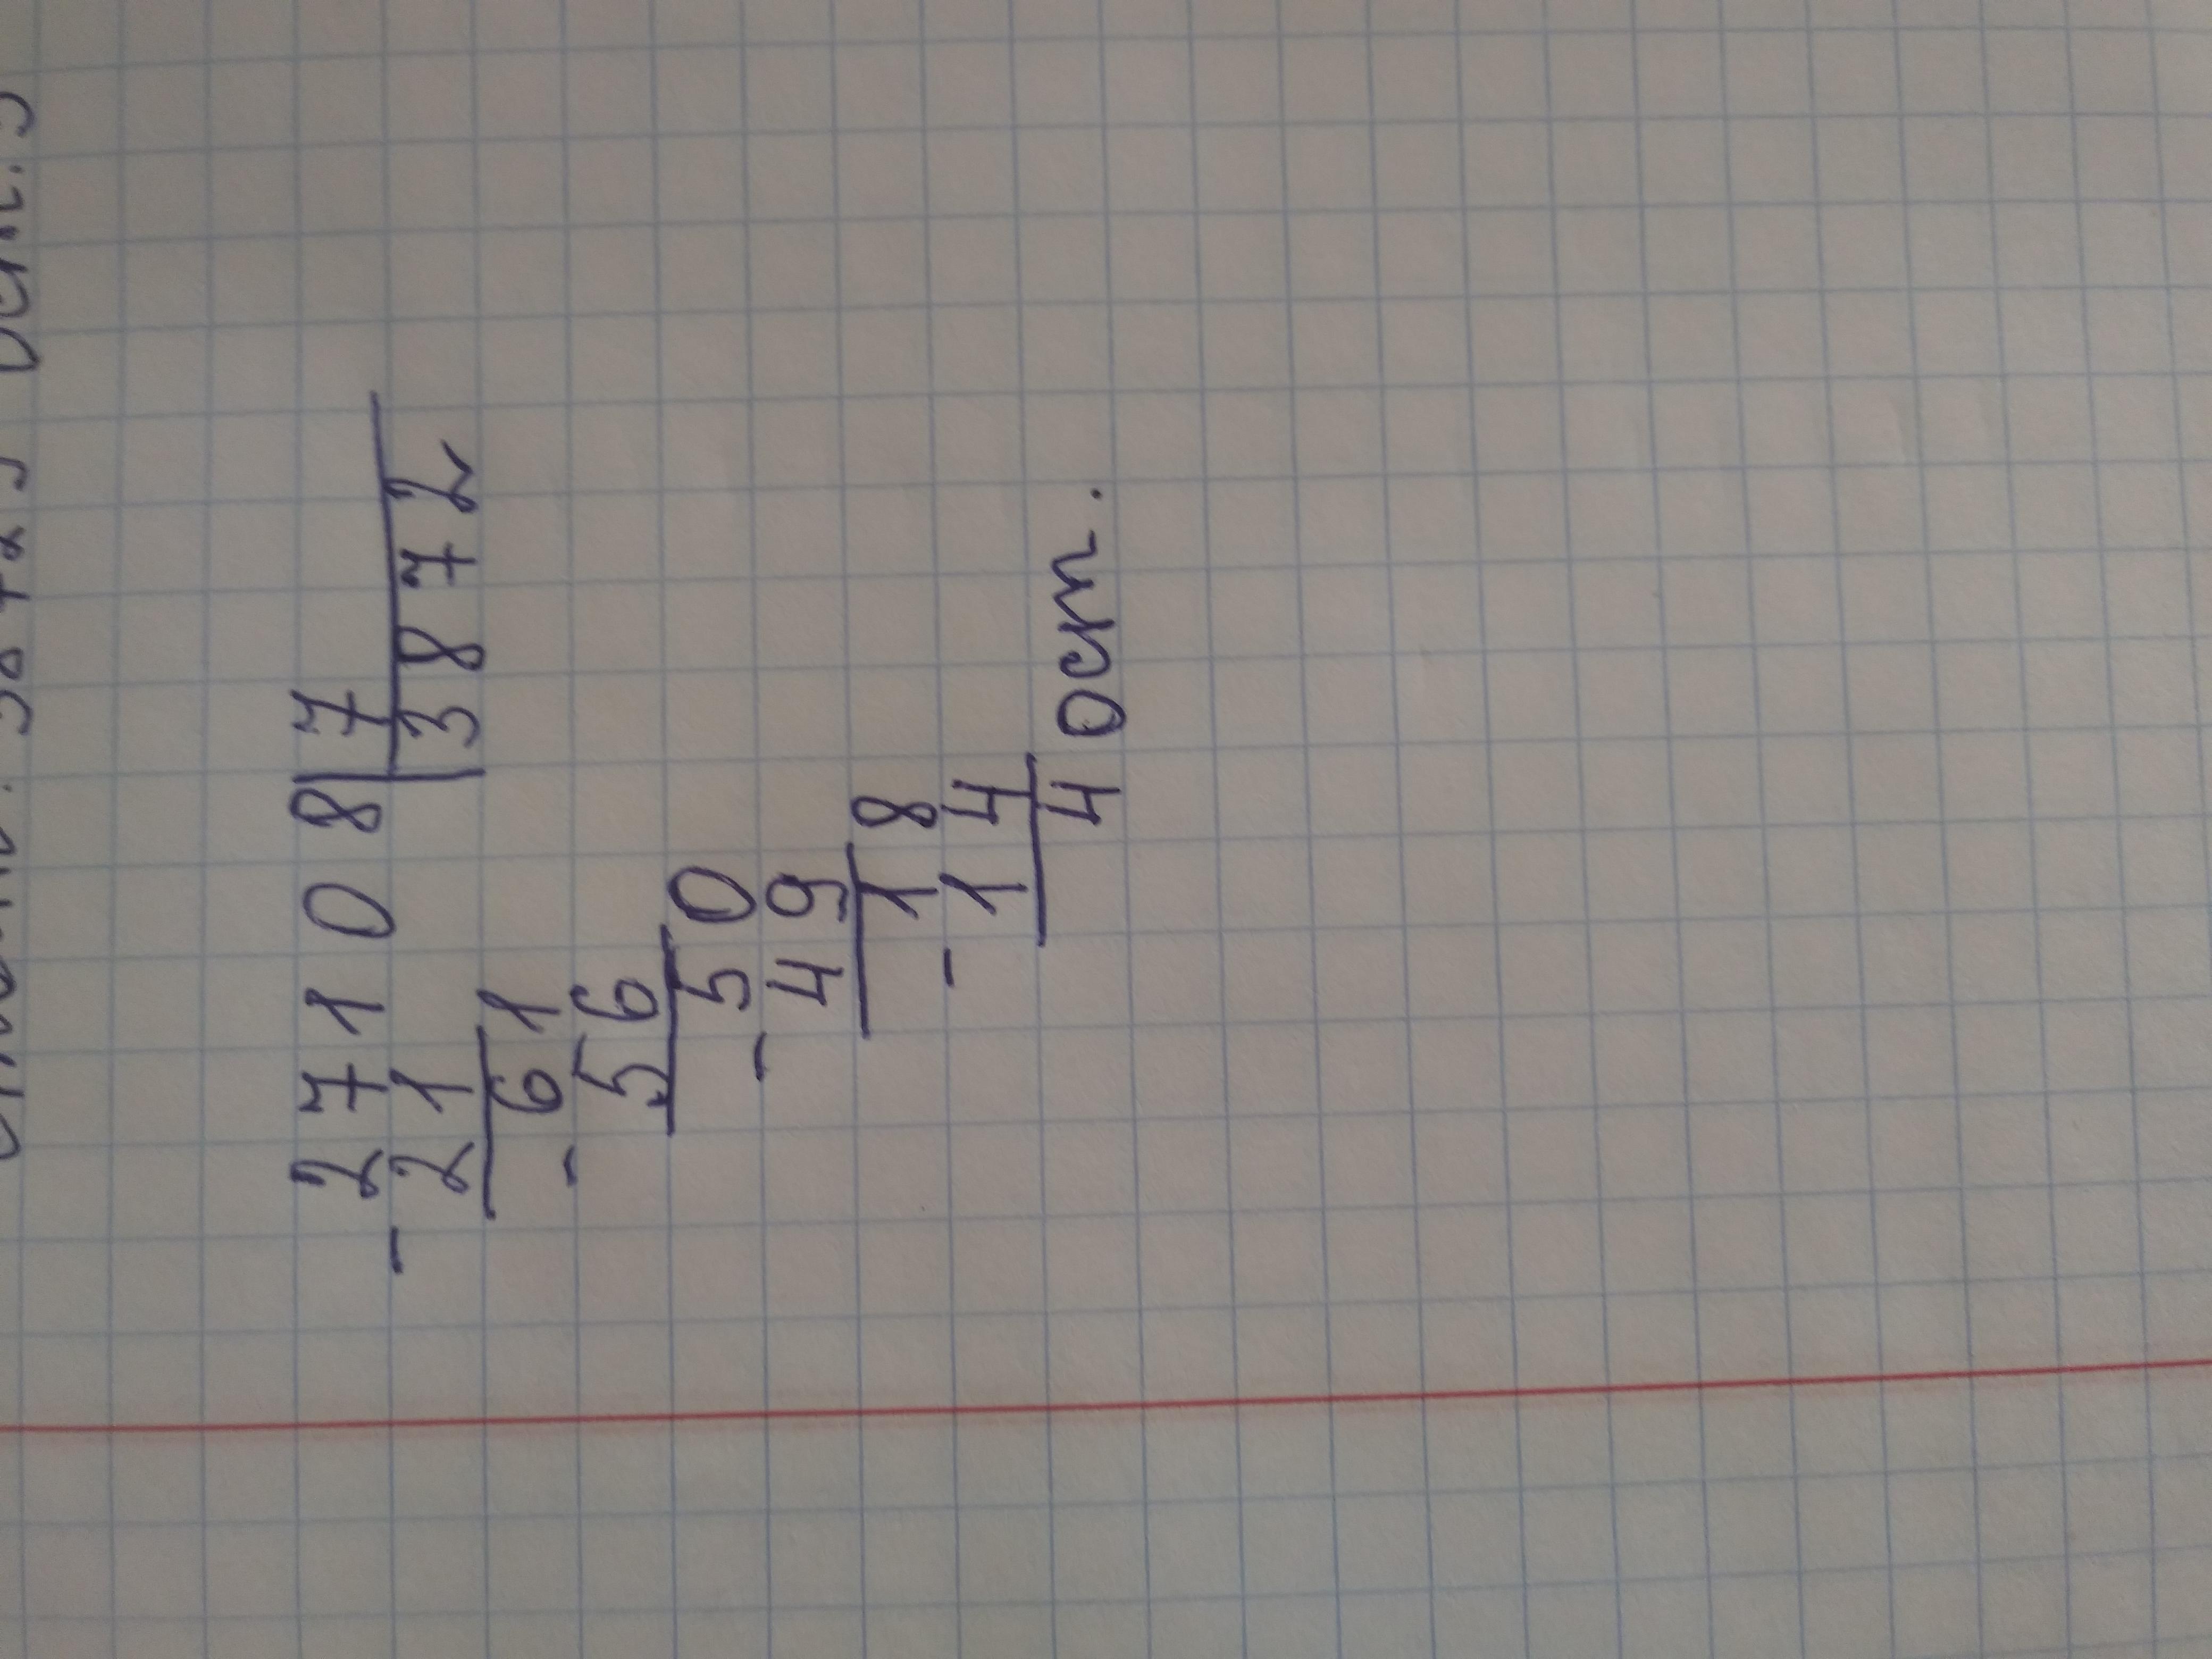 27108|7
-21 |3872
61
-56
50
-49
18
-14
4 ост.